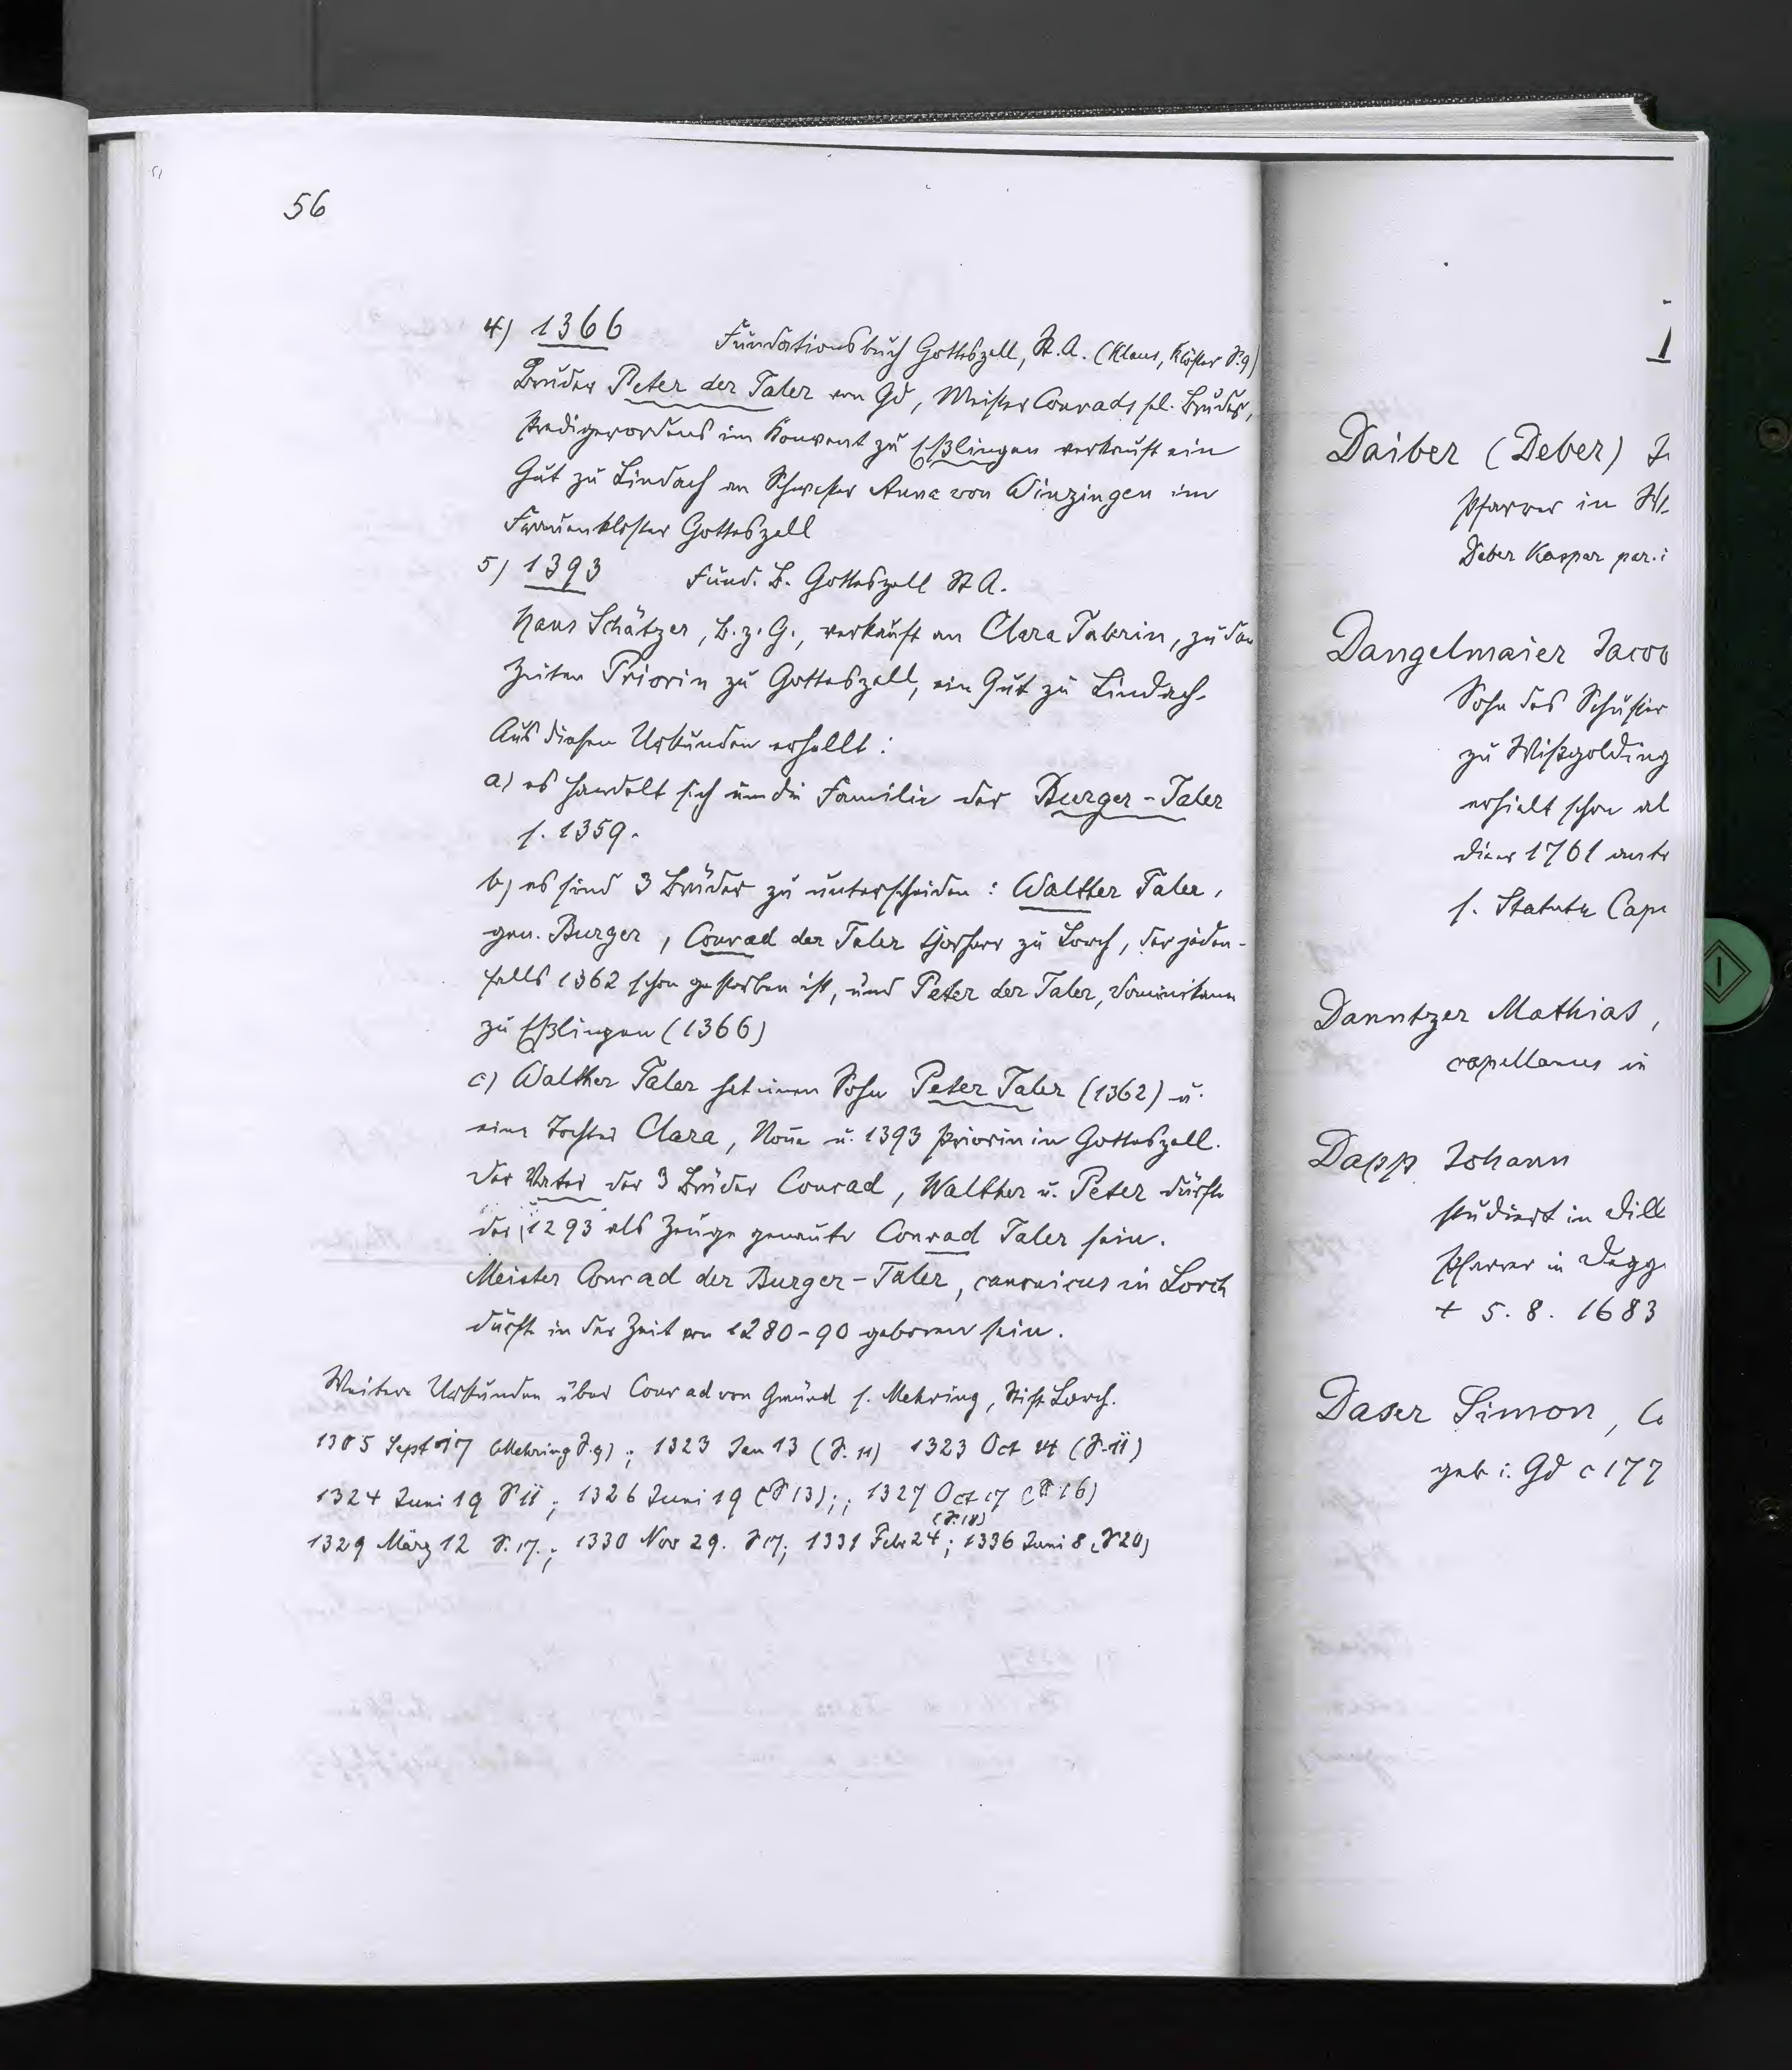 56
4) 1366 Fundationsbuch Gotteszell, St.A. (Klaus, Klöster S.9)
Bruder Peter der Taler von Gd, Meister Conrads sel. Bruder,
Predigerordens im Konvent zu Eßlingen verkauft ein
Gut zu Lindach an Schwester Anna von Winzingen im
Frauenkloster Gotteszell
5) 1393 Fund. B. Gotteszell St A.
Hans Schätzer, B.z.G., verkauft an Clara Talerin, zu den
Zeiten Priorin zu Gotteszell, ein Gut zu Lindach.
Aus diesen Urkunden erhellt:
a) es handelt sich um die Familie der Burger-Taler
s. 1359.
b) es sind 3 Brüder zu unterscheiden: Walther Taler,
gen. Burger, Conrad der Taler Chorherr zu Lorch, der jeden-
falls 1362 schon gestorben ist, und Peter der Taler, Dominikaner
zu Eßlingen (1366)
c) Walther Taler hat einen Sohn Peter Taler (1362) u.
eine Tochter Clara, Nonne u. 1393 Priorin in Gotteszell.
Der Vater der 3 Brüder Conrad, Walther u. Peter dürfte
der 1293 als Zeuge genannte Conrad Taler sein.
Meister Conrad der Burger-Taler, canonicus in Lorch
dürfte in der Zeit von 1280-90 geboren sein.
Weitere Urkunden über Conrad von Gmünd s. Mehring, Stift Lorch.
1305 Sept 17 (Mehring S.9); 1323 Jan 13 (S. 11) 1323 Oct 14 (S. 11)
1324 Juni 19 S 11; 1326 Juni 19 (S 13);; 1327 Oct 17 (S 16)
(S. 18)
1329 März 12 S. 17.; 1330 Nov 29. S 17; 1331 Febr 24; 1336 Juni 8 (S 20)
1
Daiber (Deber) J
Pfarrer in
Deber Kaspar par.
Dangelmaier Jacob
Sohn des Schuster
zu Wißgolding
erhielt schon al
1761
s. Statute Cape
Danntzer Mathias,
capellanus in
Dapp Johann
studiert in Dill
Pfarrer in Degg
+ 5. 8. 1683
Daser Simon, C
geb i. Gd c 177